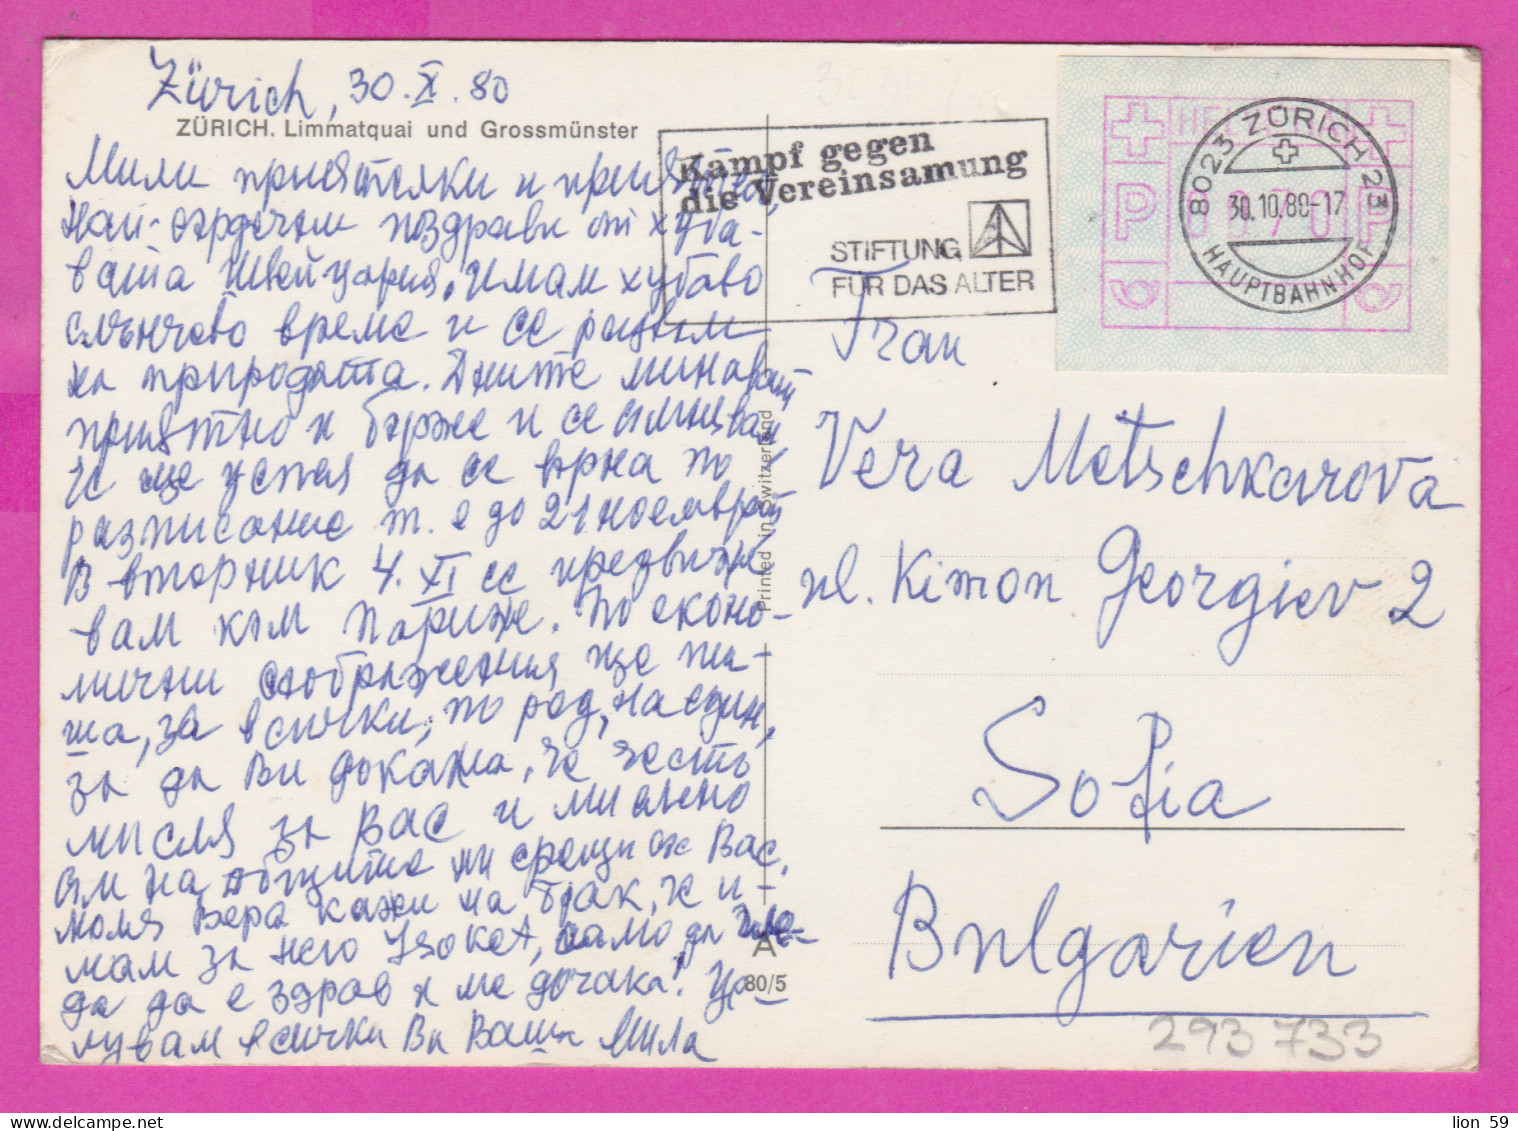 Zürich, 30. X. 80
ZÜRICH. Limmatquai und Grossmünster
Мили приятелки и приятели,
Най-сърдечни поздрави от хуба-
вата Швейцария. Имам хубаво
слънчево време и се радвам
на природата. Дните минават
приятно и бърже и се съмнявам
че ще успея да се върна по
разписание т. е до 21 ноември
В вторник 4. XI се предвиж-
вам към Париж. По еконо-
мични съображения ще пи-
ша, за всички, по ред, на един,
за да Ви докажа, че често
мисля за Вас и мислено
съм на общите ни срещи с Вас.
моля Вера кажи на брак, че и-
мам за него Isoket, само да гле-
да да е здрав и ме дочака! Це-
лувам всички Ви Ваша Мила
Kampf gegen
die Vereinsamung
STIFTUNG
FÜR DAS ALTER
8023 ZÜRICH 23
30.10.80-17
HAUPTBAHNHOF
P
P
Frau
Vera Metschkarova
ul. Kimon Georgiev 2
Sofia
Bulgarien
Printed in Switzerland
A
80/5
293 733
lion 59